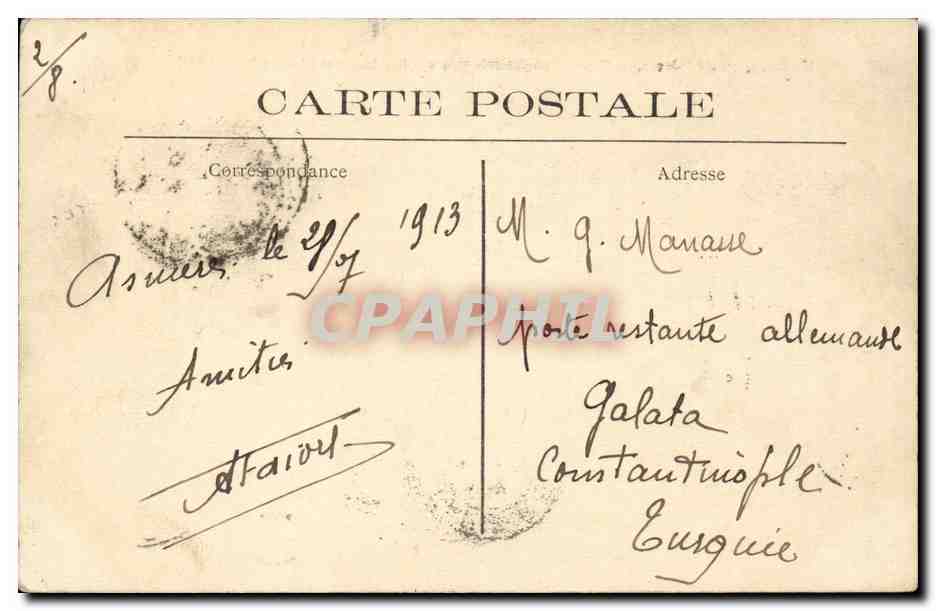 2/8.
CARTE POSTALE
Correspondance
Asnieres le 29/07 1913
Amitiés
Adresse
M. G. Manasse
poste restante allemande
Galata
Constantinople
Turquie
CPAPHIL